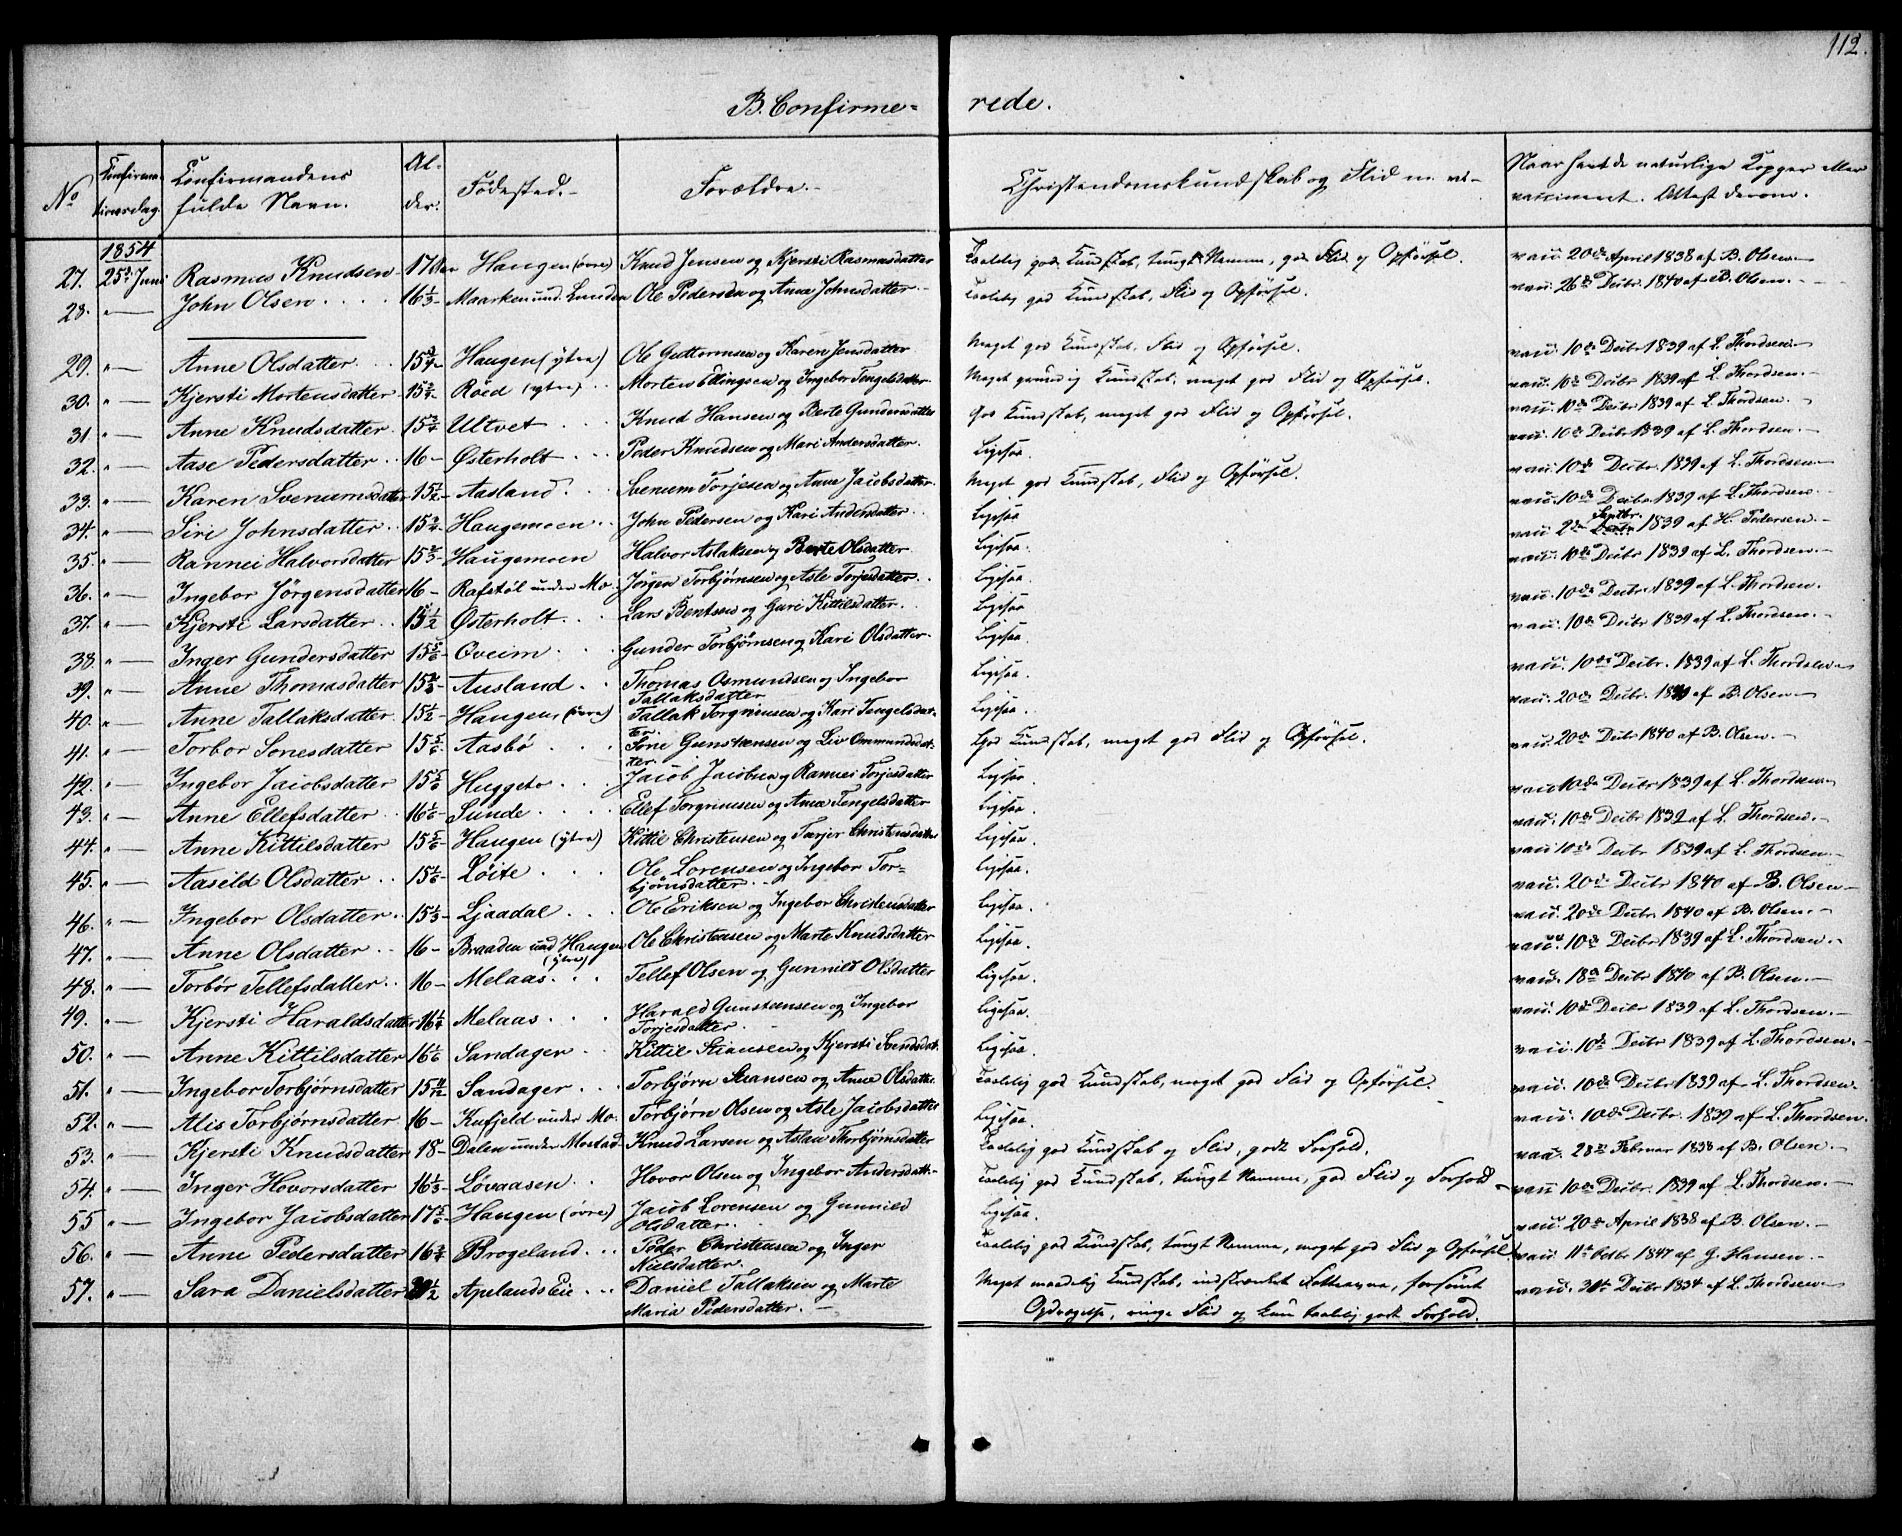 112.
B. Confirme- rede.
No Confirmationsdag. Confirmandens fulde Navn. Alder. Fødested. Forældre. Christendomskundskab og Flid m. vi- Naar havt de naturlige Kopper eller vaccineret. Attest derom.
1854
27. 25de Juni Rasmus Knudsen 17 Haugen (øvre) Knud Jensen og Kjersti Rasmusdatter Taalelig god Kundskab, tungt Nemme, god Flid og Opførsel. vacc. 20de April 1838 af B. Olsen
28. " John Olsen 16 1/3 Maarken und. Lunden Ole Pedersen og Anne Johnsdatter Taalelig god Kundskab, Flid og Opførsel. vacc. 26de Decbr. 1840 af B. Olsen
29. " Anne Olsdatter 15 3/4 Haugen (ytre) Ole Guttormsen og Karen Jensdatter Meget god Kundskab, Flid og Opførsel. vacc. 10de Decbr 1839 af L. Thordsen
30. " Kjersti Mortensdatter 15 3/4 Røed (ytre) Morten Ellingsen og Ingebor Tengelsdatter Meget grundig Kundskab, meget god Flid og Opførsel. vacc. 10de Decbr 1839 af L. Thordsen
31. " Anne Knudsdatter 15 3/4 Ultvet Knud Hansen og Berte Gundersdatter God Kundskab, meget god Flid og Opførsel. vacc. 10de Decbr 1839 af L. Thordsen
32. " Aase Pedersdatter 16 Østerholt Peder Knudsen og Mari Andersdatter Ligesaa. vacc. 10de Decbr 1839 af L. Thordsen
33. " Karen Svenumsdatter 15 1/2 Aasland Svenum Torjesen og Anne Jacobsdatter Meget god Kundskab, Flid og Opførsel. vacc. 10de Decbr. 1839 af L. Thordsen
34. " Siri Johnsdatter 15 3/4 Haugemoen John Pedersen og Kari Andersdatter Ligesaa vacc. 10de Decbr 1839 af L. Thordsen
35. " Rannei Halvorsdatter 15 2/3 Haugemoen Halvor Aslaksen og Berte Olsdatter Ligesaa. vacc. 2de Septbr. 1839 af H. Pedersen
36. " Ingebor Jörgensdatter 16 Rafstøl under Mo Jörgen Torbjørnsen og Asle Torjesdatter Ligesaa. vacc. 10de Decbr 1839 af L. Thordsen
37. " Kjersti Larsdatter 15 1/2 Østerholt Lars Bentsen og Guri Kittilsdatter Ligesaa. vacc. 10de Decbr 1839 af L. Thordsen.
38. " Inger Gundersdatter 15 5/6 Oveim Gunder Torbjørnsen og Kari Olsdatter Ligesaa. vacc. 10de Decbr 1839 af L. Thordsen
39. " Anne Thomasdatter 15 2/3 Ausland Thomas Osmundsen og Ingebor Tallaksdatter Ligesaa. vacc. 10de Decbr. 1839 af L. Thordsen
40. " Anne Tallaksdatter 15 1/2 Haugen (øvre) Tallak Torgrimsen og Kari Tengelsdatter Ligesaa. vacc. 20de Decbr. 1840 af B. Olsen
41. " Torbor Sonesdatter 15 5/6 Aasbö Sone Gunstensen og Liv Ommundsdatter. God Kundskab, meget god Flid og Opførsel. vacc. 20de Decbr 1840 af B. Olsen
42. " Ingebor Jacobsdatter 15 5/6 Huggeto Jacob Jacobsen og Rannei Torjesdatter Ligesaa vacc. 10de Decbr 1839 af L. Thordsen
43. " Anne Ellefsdatter 16 1/6 Lunde Ellef Torgrimsen og Anne Tengelsdatter Ligesaa. vacc. 10de Decbr 1839 af L. Thordsen
44. " Anne Kittilsdatter 15 5/6 Haugen (ytre) Kittil Christensen og Tarjer Christensdatter Ligesaa. vacc. 10de Decbr 1839 af L. Thordsen
45. " Aasild Olsdatter 15 1/6 Løite Ole Lorensen og Ingebor Torbjørnsdatter Ligesaa. vacc. 20de Decbr 1840 af B. Olsen
46. " Ingebor Olsdatter 15 1/3 Ljaadal Ole Eriksen og Ingebor Christensdatter Ligesaa. vacc. 20de Decbr. 1840 af B. Olsen
47. " Anne Olsdatter 16 Braaden und Haugen (ytre) Ole Christensen og Marte Knudsdatter Ligesaa. vacc. 10de Decbr 1839 af L. Thordsen
48. " Torbør Tellefsdatter 16 Melaas Tellef Olsen og Gunnild Olsdatter Ligesaa. vacc. 18de Decbr 1840 af B. Olsen
49. " Kjersti Haraldsdatter 16 1/4 Melaas Harald Gunstensen og Ingebor Torjesdatter Ligesaa. vacc. 10de Decbr 1839 af L. Thordsen
50. " Anne Kittilsdatter 16 1/6 Sandager Kittil Stiansen og Kjersti Svendsdat. Ligesaa. vacc. 10de Decbr 1839 af L. Thordsen
51. " Ingebor Torbjørnsdatter 15 11/12 Sandager Torbjørn Stiansen og Anne Olsdatter Taalelig god Kundskab, meget god Flid og Opførsel. vacc. 10de Decbr 1839 af L. Thordsen
52. " Alis Torbjørnsdatter 16 Kufjeld under Mo Torbjørn Olsen og Asle Jacobsdatter Ligesaa. vacc. 10de Decbr. 1839 af L. Thordsen.
53. " Kjersti Knudsdatter 18 Dalen under Mostad Knud Larsen og Aslau Thorbjørnsdatter Taalelig god Kundskab og Flid, godt Forhold. vacc. 28de Februar 1838 af B. Olsen
54. " Inger Hovorsdatter 16 1/3 Løvaasen Hovor Olsen og Ingebor Andersdatter Taalelig god Kundskab, tungt Nemme, god Flid og Forhold vacc. 10de Decbr 1839 af L. Thordsen
55 " Ingebor Jacobsdatter 17 5/6 Haugen (øvre) Jacob Lorensen og Gunnild Olsdatter Ligesaa. vacc. 20de April 1838 af B. Olsen
56. " Anne Pedersdatter 16 3/4 Brogeland Peder Christensen og Inger Nielsdatter Taalelig god Kundskab, tungt Nemme, meget god Flid og Opførsel vacc. 11te Octbr 1847 af G. Hansen
57. " Sara Danielsdatter Apelands Eie Daniel Tallaksen og Marte Maria Pedersdatter Meget maadelig Kundskab, indskrænket Fatteevne, forsømt Opdragelse, ringe Flid og kun taalelig godt Forhold. vacc. 31te Decbr 1834 af L. Thordsen